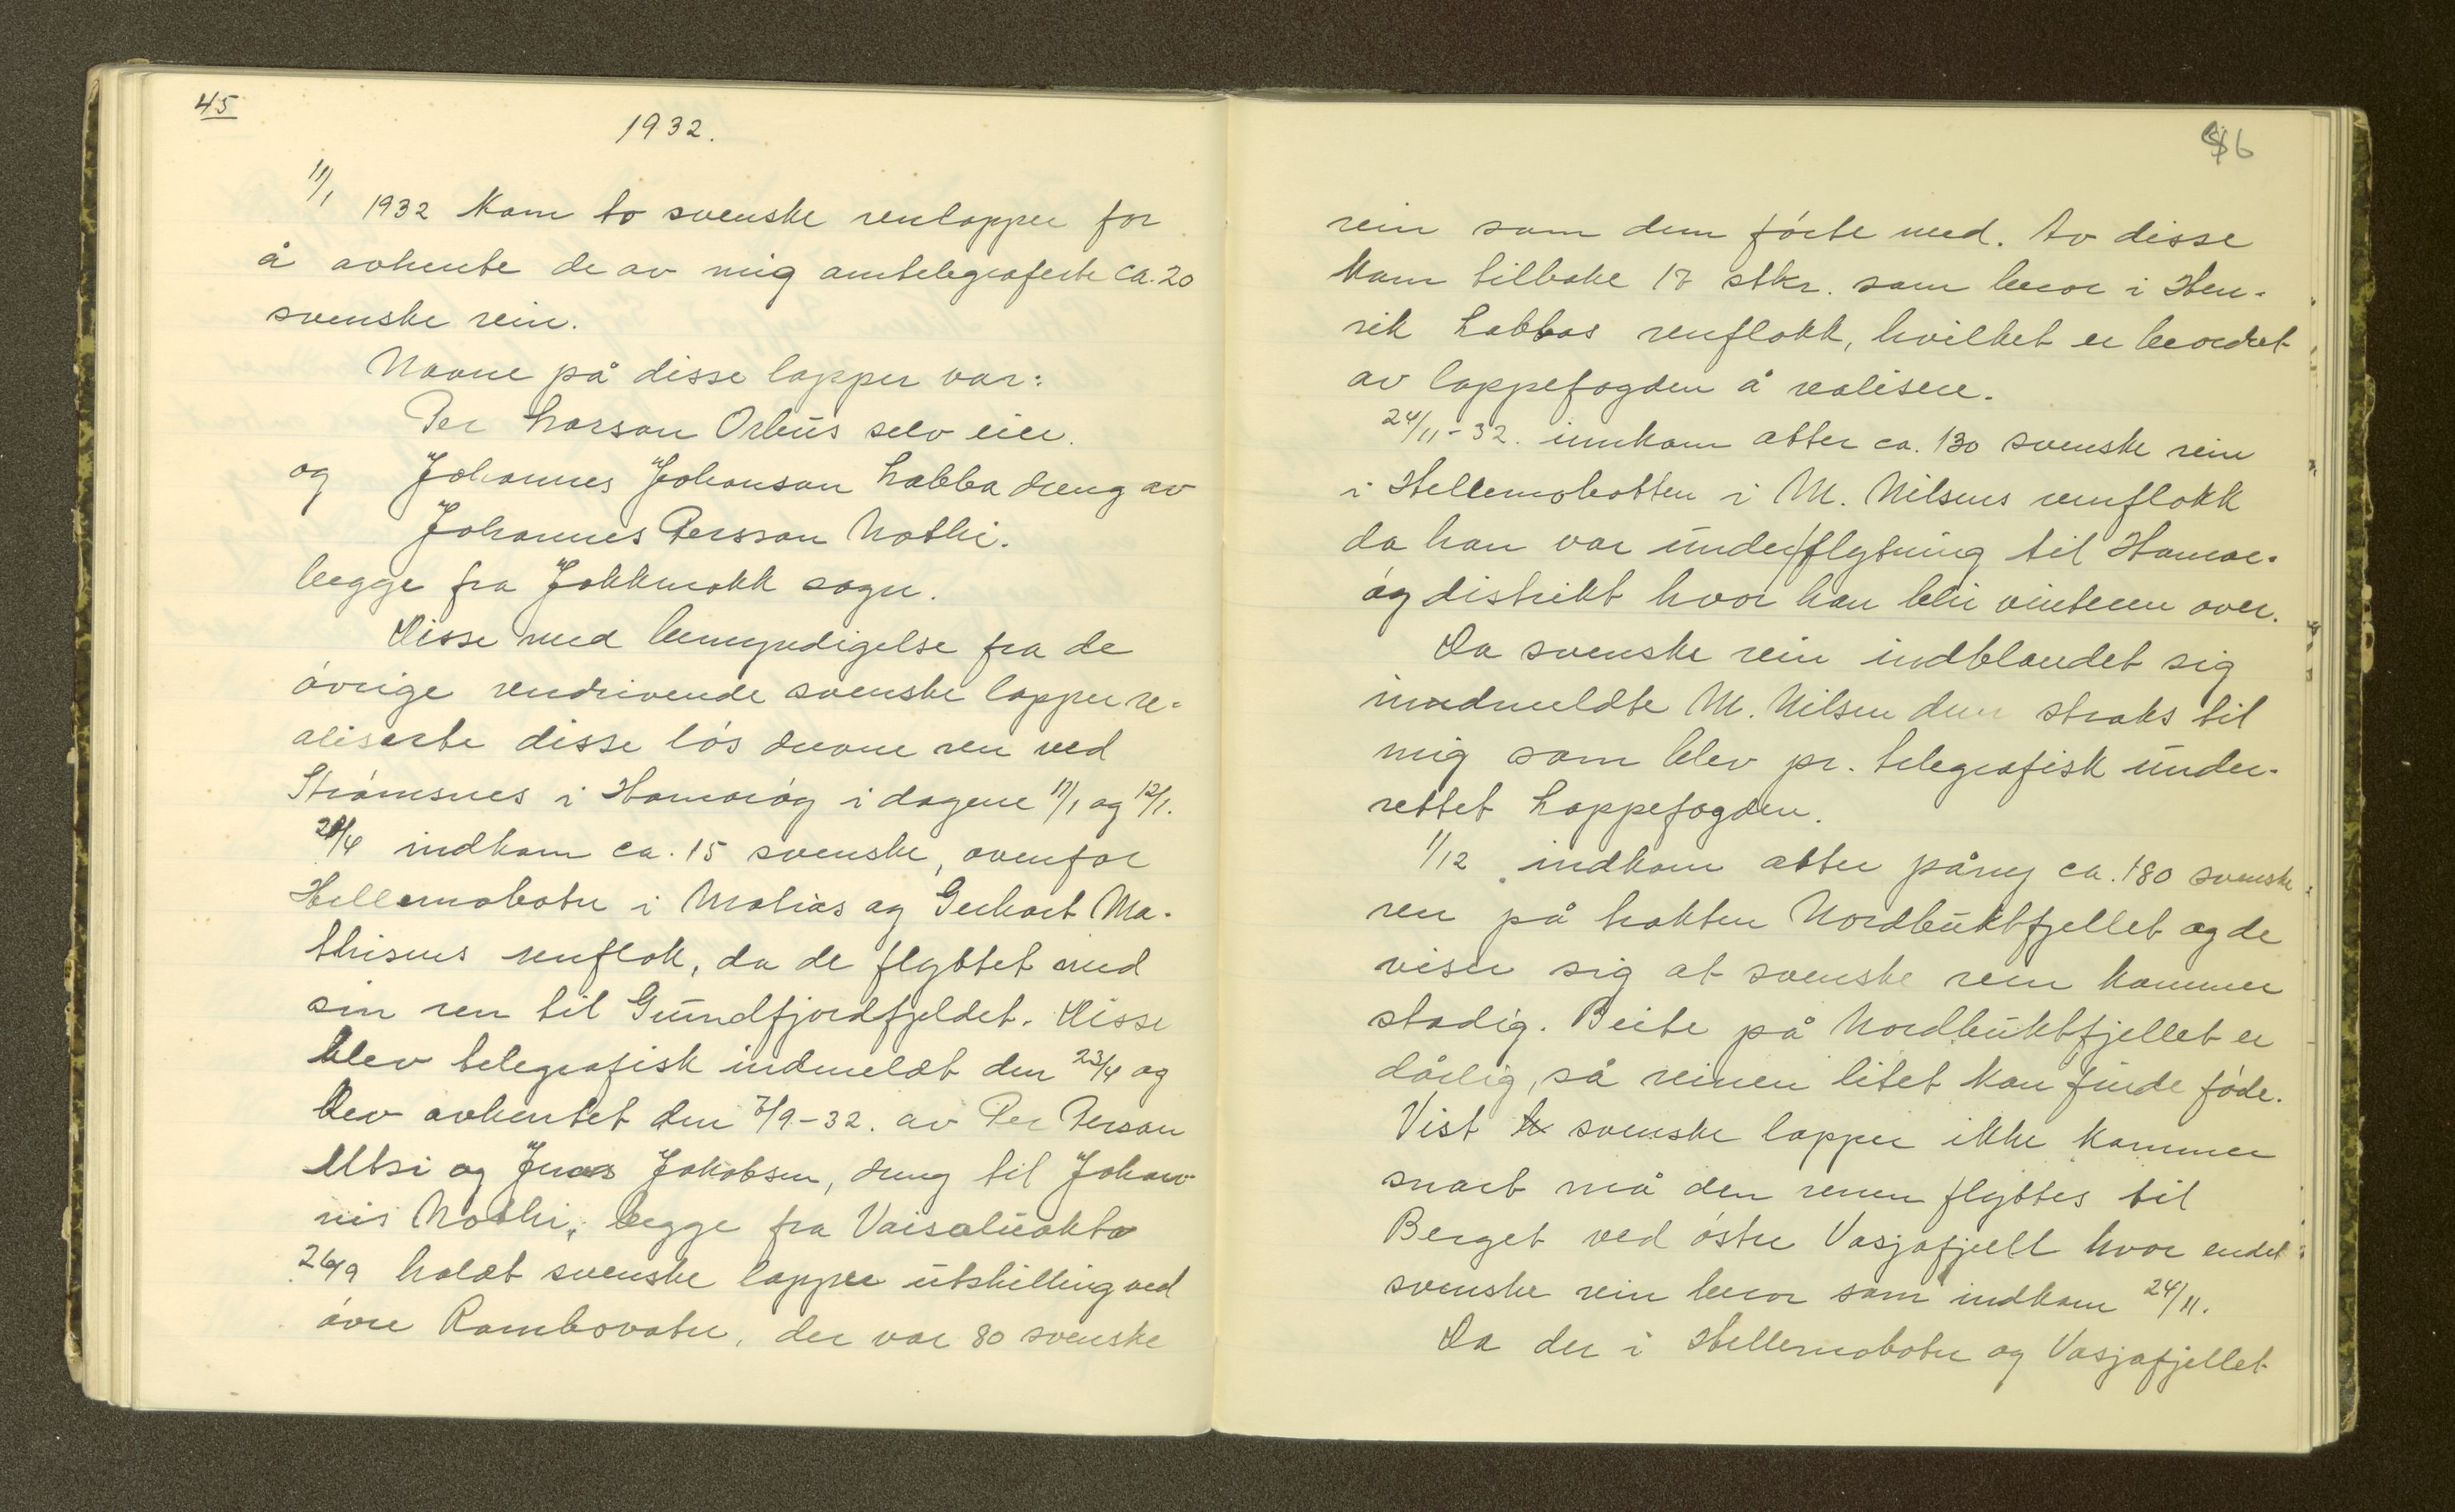 45
1932.
11/1 1932 kom to svenske renlapper for
å avhente de av mig amtelegraferte ca. 20
svenske rein.
Navne på disse lapper var:
Per Larson Orbus selv eier.
og Johannes Johanson Labba dreng av
Johannes Persson Nothi.
begge fra Jokkmokk sogn.
Disse med bemyndigelse fra de
óvrige rendrivende svenske lapper re-
aliserte disse lós drevne ren ved
Strómsnes i Hamaróy i dagene 11/1 og 12/1.
20/4 indkom ca. 15 svenske, ovenfor
Hellemobotn i Matias og Gerhart Ma-
thisens renflok, da de flyttet med
sin ren til Grundfjordfjeldet. Disse
blev telegrafisk indmeldt den 23/4 og
blev avhentet den 7/9-32. av Per Person
Utsi og Jnas Jakobsen, dreng til Johan-
nis Nothi, begge fra Vaisaluokta
26/9 holdt svenske lapper utskilling ved
óvre Rambovatn, der var 80 svenske
46
rein som dem fórte med. Av disse
kom tilbake 17 stkr. som beror i Hen-
rik Labbas renflokk, hvilket er beordret
av lappefogden å realisere.
24/11-32. innkom atter ca. 130 svenske rein
i Hellemobotten i M. Nilsens renflokk
da han var under flytning til Hamar-
óy distrikt hvor han blir vinteren over.
Da svenske rein indblandet sig
inndmeldte M. Nilsen den straks til
mig som blev pr. telegrafisk under-
rettet Lappefogden.
1/12 indkom atter påny ca. 180 svenske
ren på trakten Nordbuktfjellet og de
viser sig at svenske ren kommer
stadig. Beite på Nordbuktfjellet er
dårlig, så reinen litet kan finde fóde.
Vist svenske lapper ikke kommer
snart må den renen flyttes til
Berget ved óstre Vasjafjell hvor endel
svenske rein beror som indkom 24/11.
Da der i Hellemobotn og Vasjafjellet